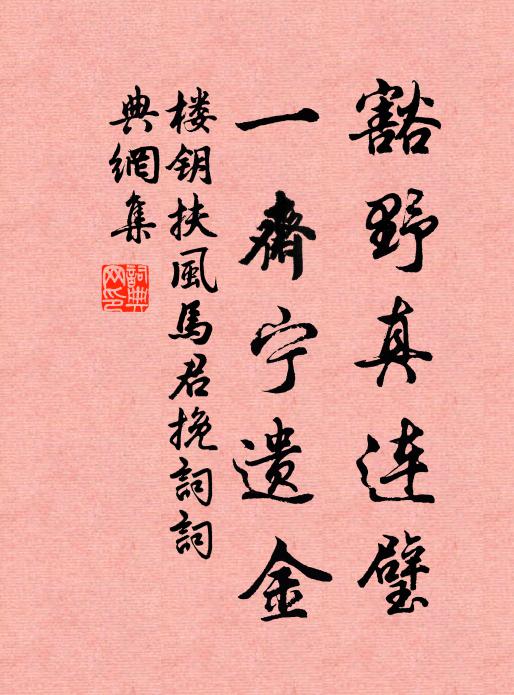 豁野真连璧
一齋宁遗金
楼钥扶風馬君挽詞詞
典網集
詞典网印